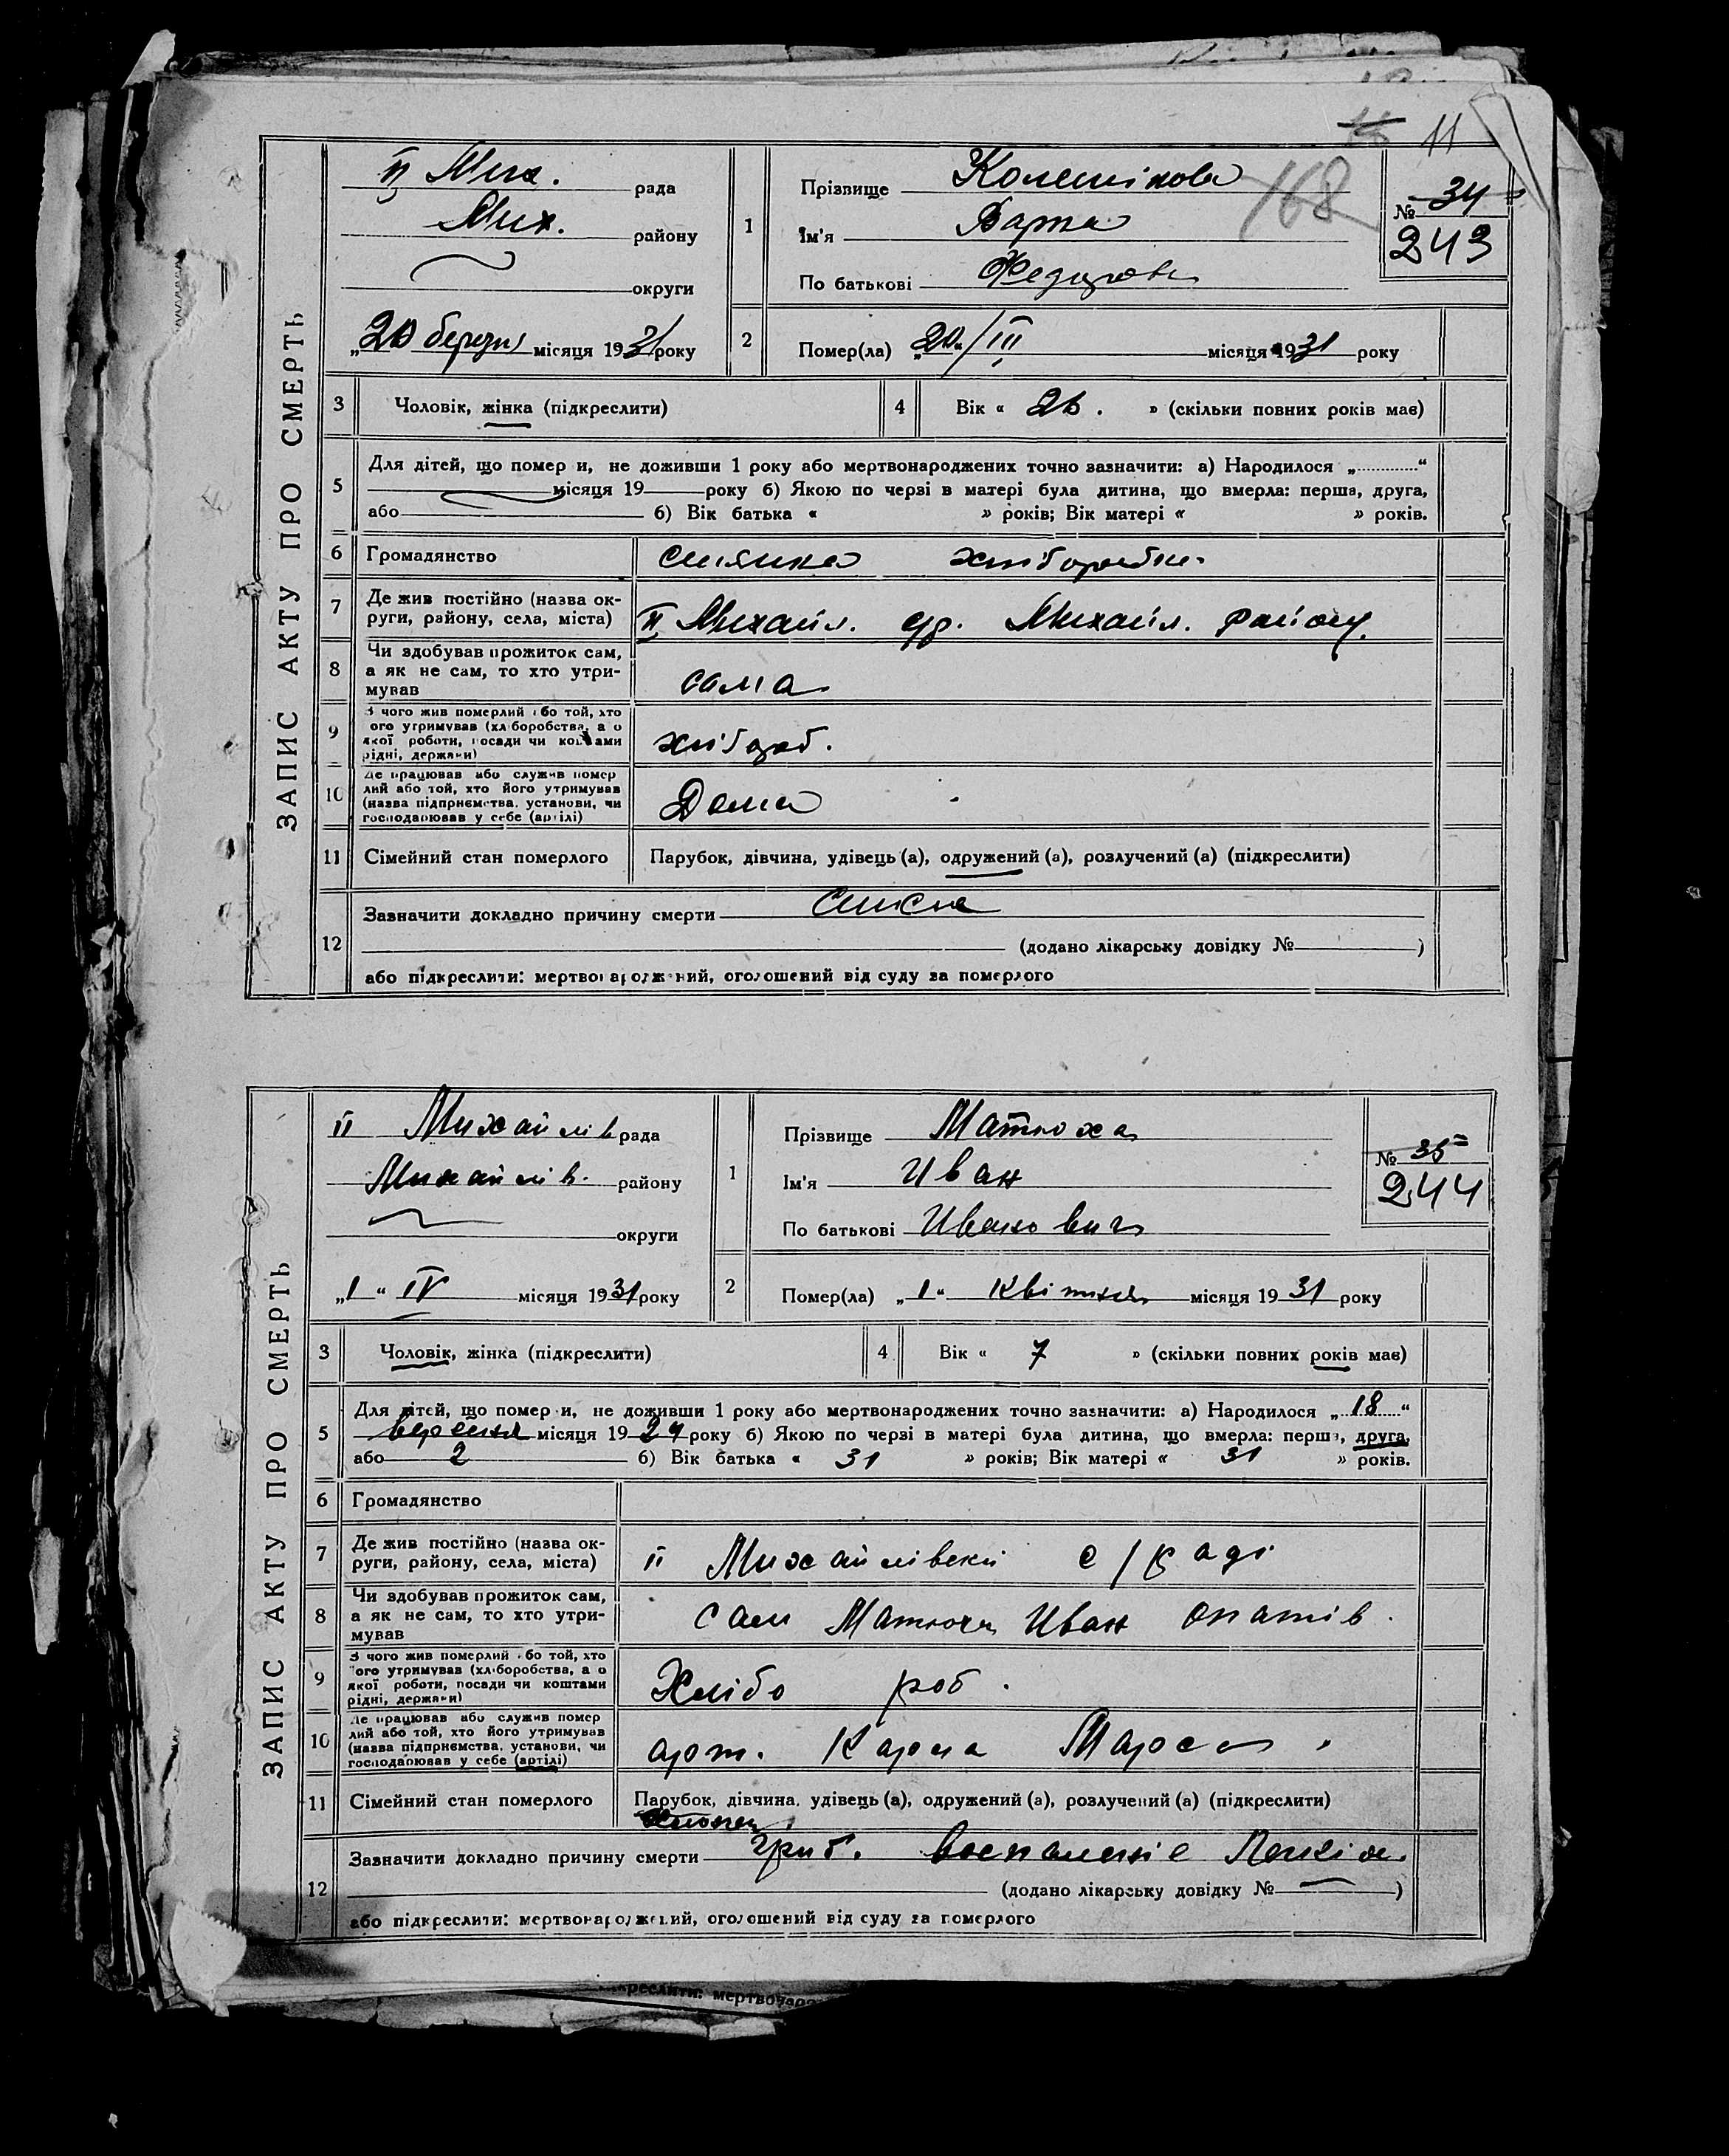 11
168
ЗАПИС АКТУ ПРО СМЕРТЬ
ІІ Мих. рада
Мих. району
округи
„20 березня місяця 1931 року
1
Прізвище
Ім'я
По батькові
№ 34
243
2
Помер(ла) „20“/III місяця 1931 року
3
Чоловік, жінка (підкреслити)
4
Вік « 26. » (скільки повних років має)
5
Для дітей, що помер и, не доживши 1 року або мертвонароджених точно зазначити: а) Народилося „............“
місяця 19 року б) Якою по черзі в матері була дитина, що вмерла: перша, друга,
або б) Вік батька « » років; Вік матері « » років.
6
Громадянство
селянка хлібороби
7
Де жив постійно (назва ок-
руги, району, села, міста)
ІІ Михайл. с/р. Михайл. району
8
Чи здобував прожиток сам,
а як не сам, то хто утри-
мував
сама
9
З чого жив померлий або той, хто
ого утримував (хліборобства, а о
якої роботи, посади чи коштами
рідні, держави)
хлібороб.
10
Де працював або служив помер
лий або той, хто його утримував
(назва підприємства, установи, чи
господарював у себе (артілі)
Дома
11
Сімейний стан померлого
Парубок, дівчина, удівець (а), одружений (а), розлучений (а) (підкреслити)
12
Зазначити докладно причину смерти
(додано лікарську довідку № )
або підкреслити: мертвонароджений, оголошений від суду за померлого
ЗАПИС АКТУ ПРО СМЕРТЬ
ІІ Михайлів рада
Михайлів. району
округи
„1“ IV місяця 1931 року
1
Прізвище Матюха
Ім'я Иван
По батькові Иванович
№ 35
244
2
Помер(ла) „1“ Квітня місяця 1931 року
3
Чоловік, жінка (підкреслити)
4
Вік « 7 » (скільки повних років має)
5
Для дітей, що помер и, не доживши 1 року або мертвонароджених точно зазначити: а) Народилося „18“
місяця 19 року б) Якою по черзі в матері була дитина, що вмерла: перша, друга,
або 2 б) Вік батька « 31 » років; Вік матері « 31 » років.
6
Громадянство
7
Де жив постійно (назва ок-
руги, району, села, міста)
ІІ Михайлівскій с/раді
8
Чи здобував прожиток сам,
а як не сам, то хто утри-
мував
сам Матюха Иван
9
З чого жив померлий або той, хто
ого утримував (хліборобства, а о
якої роботи, посади чи коштами
рідні, держави)
Хлібо роб.
10
Де працював або служив помер
лий або той, хто його утримував
(назва підприємства, установи, чи
господарював у себе (артілі)
арт. Карла Маркса.
11
Сімейний стан померлого
Парубок, дівчина, удівець (а), одружений (а), розлучений (а) (підкреслити)
12
Зазначити докладно причину смерти воспаленіе Легкіх.
(додано лікарську довідку № )
або підкреслити: мертвонароджений, оголошений від суду за померлого